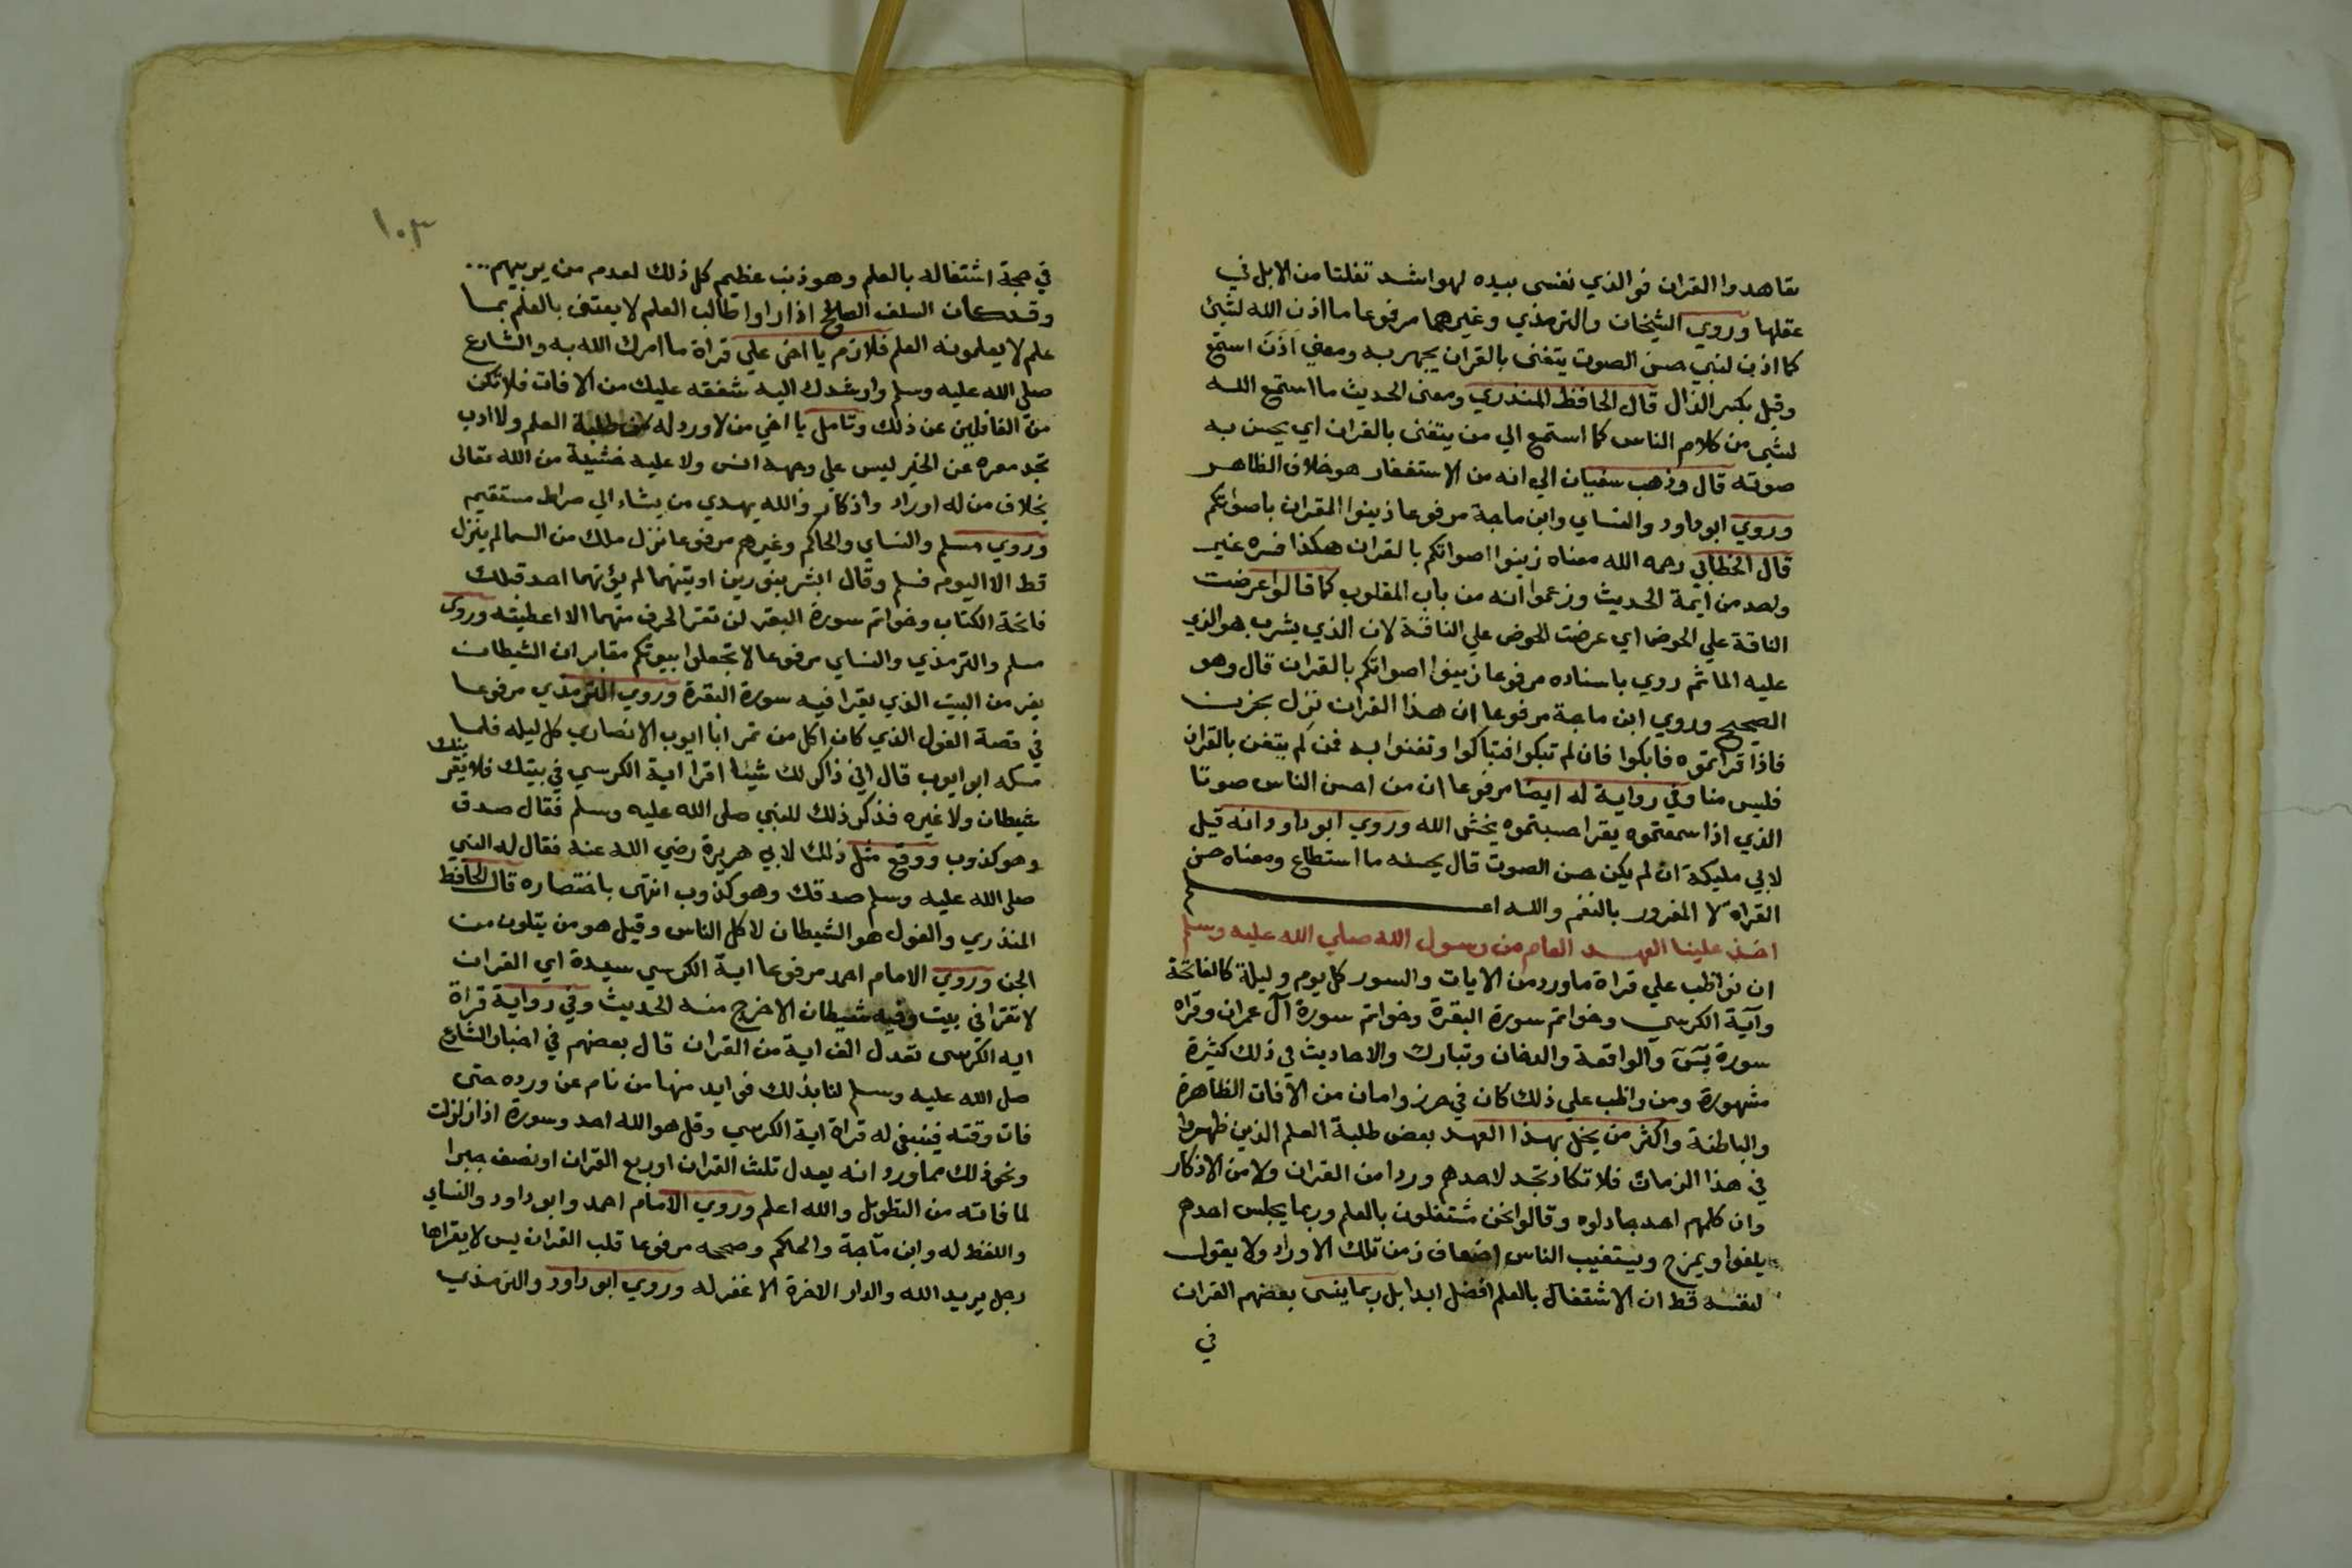 تعاهدوا القران فوالذي نفسي بيده لهو اشد تفلتا من الابل في
عقلها وروي الشيخان والترمذي وغيرهما مرفوعا ما اذن الله لشئ
كما اذن لنبي حسن الصوت يتغنى بالقران يجهر به ومعني اَذَنَ استمع
وقيل بكسر الذال قال الحافظ المنذري ومعنى الحديث ما استمع الله
لشي من كلام الناس كما استمع الي من يتغنى بالقران اي يحسن به
صوته قال وذهب سفيان الي انه من الاستغفار هو خلاف الظاهر
وروي ابو داود والنساي وابن ماجة مرفوعا زينوا القران باصواتكم
قال الخطابي رحمه الله معناه زينوا اصواتكم بالقران هكذا فسره غير
واحد من ايمة الحديث وزعموا انه من باب المقلوب كما قالوا عرضت
الناقة علي الحوض اي عرضت الحوض علي الناقة لان الذي يشرب هو الذي
عليه الما ثم روي باسناده مرفوعا زينوا اصواتكم بالقران قال وهو
الصحيح وروي ابن ماجة مرفوعا ان هذا القران نزل بحزن
فاذا قراتموه فابكوا فان لم تبكوا فتباكوا وتغنوا به فمن لم يتغن بالقران
فليس منا وفي رواية له ايضا مرفوعا ان من احسن الناس صوتا
الذي اذا سمعتموه يقرا حسبتموه يخشى الله وروي ابو داود انه قيل
لابي مليكة ان لم يكن حسن الصوت قال يحسنه ما استطاع ومعناه حسن
القراه لا المغرور بالنغم والله اعلم
اخذ علينا العهد العام من رسول الله صلي الله عليه وسلم
ان نواظب علي قراة ما ورد من الايات والسور كل يوم وليلة كالفاتحة
وآية الكرسي وخواتم سورة البقرة وخواتم سورة آل عمران وقراه
سورة يس والواقعة والدخان وتبارك والاحاديث في ذلك كثيرة
مشهورة ومن واظب علي ذلك كان في حرز وامان من الآفات الظاهرة
والباطنة واكثر من يخل بهذا العهد بعض طلبة العلم الذين ظهروا
في هذا الزمان فلا تكاد تجد لاحدهم وردا من القران ولا من الاذكار
وان كلمهم احد جادلوه وقالوا نحن مشتغلون بالعلم وربما يجلس احدهم
يلغوا ويمزح ويستغيب الناس اضعاف زمن تلك الاوراد ولا يقول
لنفسه قط ان الاشتغال بالعلم افضل ابدا بل ربما ينسى بعضهم القران
في
١٠٣
في حجة اشتغاله بالعلم وهو ذنب عظيم كل ذلك لعدم من يربيهم
وقد كان السلف الصالح اذا راوا طالب العلم لا يعتني بالعلم بما
علم لا يعلمونه العلم فلازم يا اخى علي قراة ما امرك الله به والشارع
صلى الله عليه وسلم وارشدك اليه شفقه عليك من الافات فلا تكن
من الغافلين عن ذلك وتامل يا اخي من لا ورد له من طلبة العلم ولا ادب
تجد معره عن الخير ليس علي وجهه انس ولا عليه خشية من الله تعالى
بخلاف من له اوراد واذكار والله يهدي من يشاء الي صراط مستقيم
وروي مسلم والنساي والحاكم وغيرهم مرفوعا نزل ملك من السما لم ينزل
قط الا اليوم فسلم وقال ابشر بنورين اوتيتهما لم يؤتهما احد قبلك
فاتحة الكتاب وخواتم سورة البقر لن تقرا لحرف منهما الا اعطيته وروى
مسلم والترمذي والنساي مرفوعا لا تجعلوا بيوتكم مقابر ان الشيطان
يفر من البيت الذي يقرا فيه سورة البقرة وروي الترمذي مرفوعا
في قصة الغول الذي كان اكل من تمر ابا ايوب الانصاري كل ليله فلما
مسكه ابو ايوب قال اني ذاكر لك شيئا اقرا اية الكرسي في بيتك فلا يقربنك
شيطان ولا غيره فذكر ذلك للنبي صلى الله عليه وسلم فقال صدق
وهو كذوب ووقع مثل ذلك لابي هريرة رضي الله عنه فقال له النبي
صلى الله عليه وسلم صدقك وهو كذوب انتهى باختصاره قال الحافظ
المنذري والغول هو الشيطان لا كل الناس وقيل هو من يتلون من
الجن وروي الامام احمد مرفوعا اية الكرسي سيدة اي القران
لا تقرا في بيت وفيه شيطان الا خرج منه الحديث وفي رواية قراة
ايه الكرسي تعدل الف اية من القران قال بعضهم في اخبار الشارع
صلى الله عليه وسلم لنا بذلك فوايد منها من نام عن ورده حتى
فات وقته فينبغي له قراة اية الكرسي وقل هو الله احد وسورة اذا زلزلت
ونحو ذلك مما ورد انه يعدل ثلث القران او ربع القران او نصف جبرا
لما فاته من التطويل والله اعلم وروي الامام احمد وابو داود والنساي
واللفظ له وابن ماجة والحاكم وصححه مرفوعا قلب القران يس لا يقراها
رجل يريد الله والدار الاخرة الا غفر له وروي ابو داود والترمذي